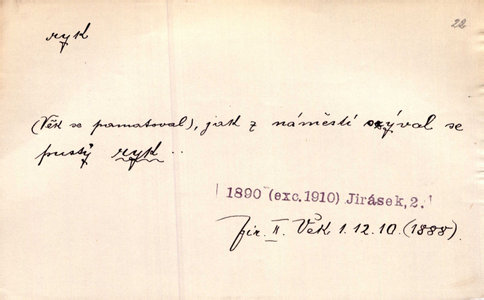 22
ryk
(Věk se pamatoval), jak z náměstí ozýval se
pustý ryk ..
1890 (exc.1910) Jirásek, 2.
Jir. II. Věk 1.12.10. (1888).